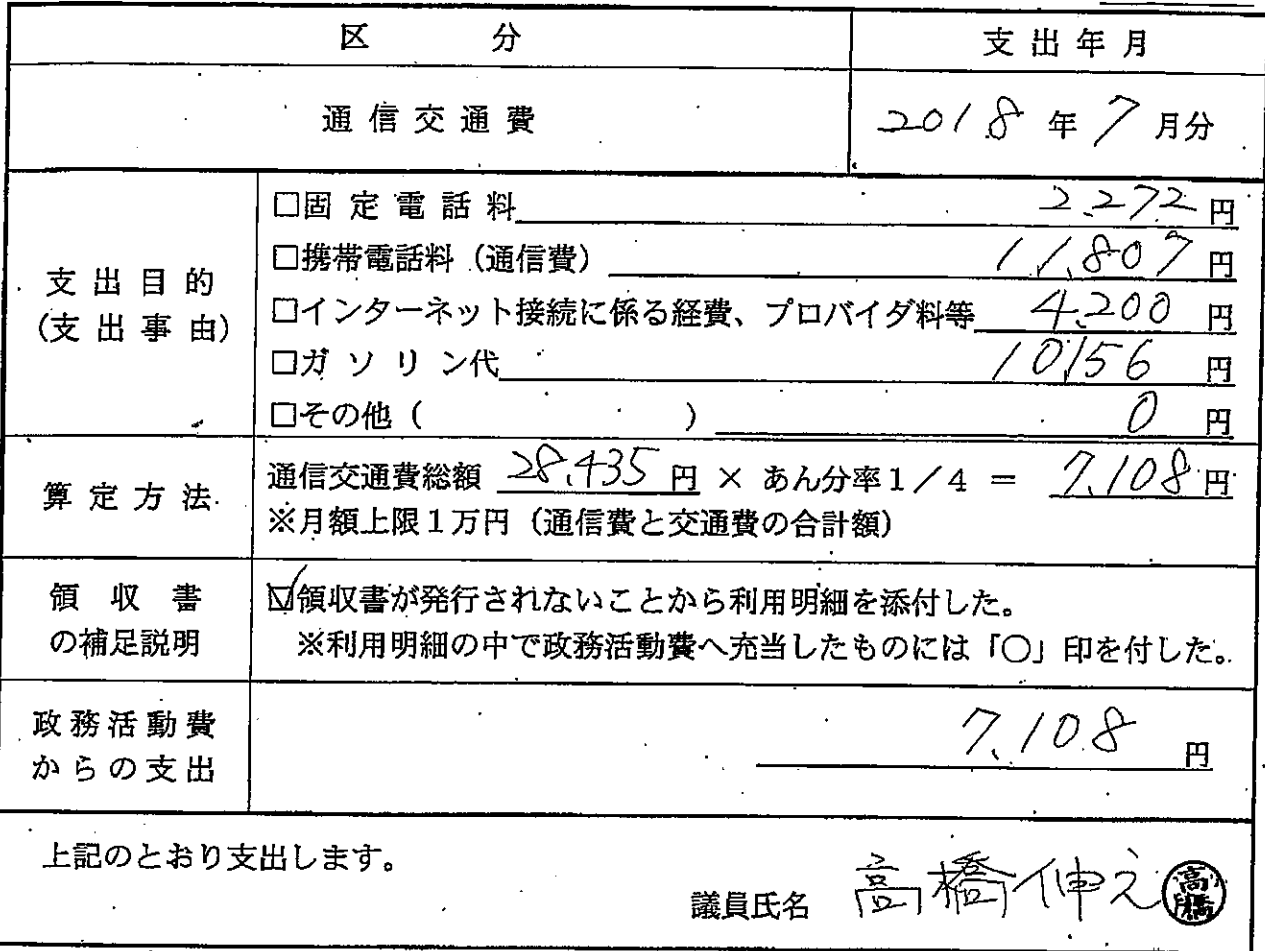 区分 支出年月
通信交通費 2018年7月分
支出目的
(支出事由)
□固定電話料 2,272円
□携帯電話料（通信費） 11,807円
□インターネット接続に係る経費、プロバイダ料等 4,200円
□ガソリン代 10,156円
□その他（ ） 0円
算定方法
通信交通費総額 28,435円 × あん分率1／4 ＝ 7,108円
※月額上限1万円（通信費と交通費の合計額）
領収書
の補足説明
☑領収書が発行されないことから利用明細を添付した。
※利用明細の中で政務活動費へ充当したものには「○」印を付した。
政務活動費
からの支出
7,108円
上記のとおり支出します。
議員氏名 高橋伸え 高橋